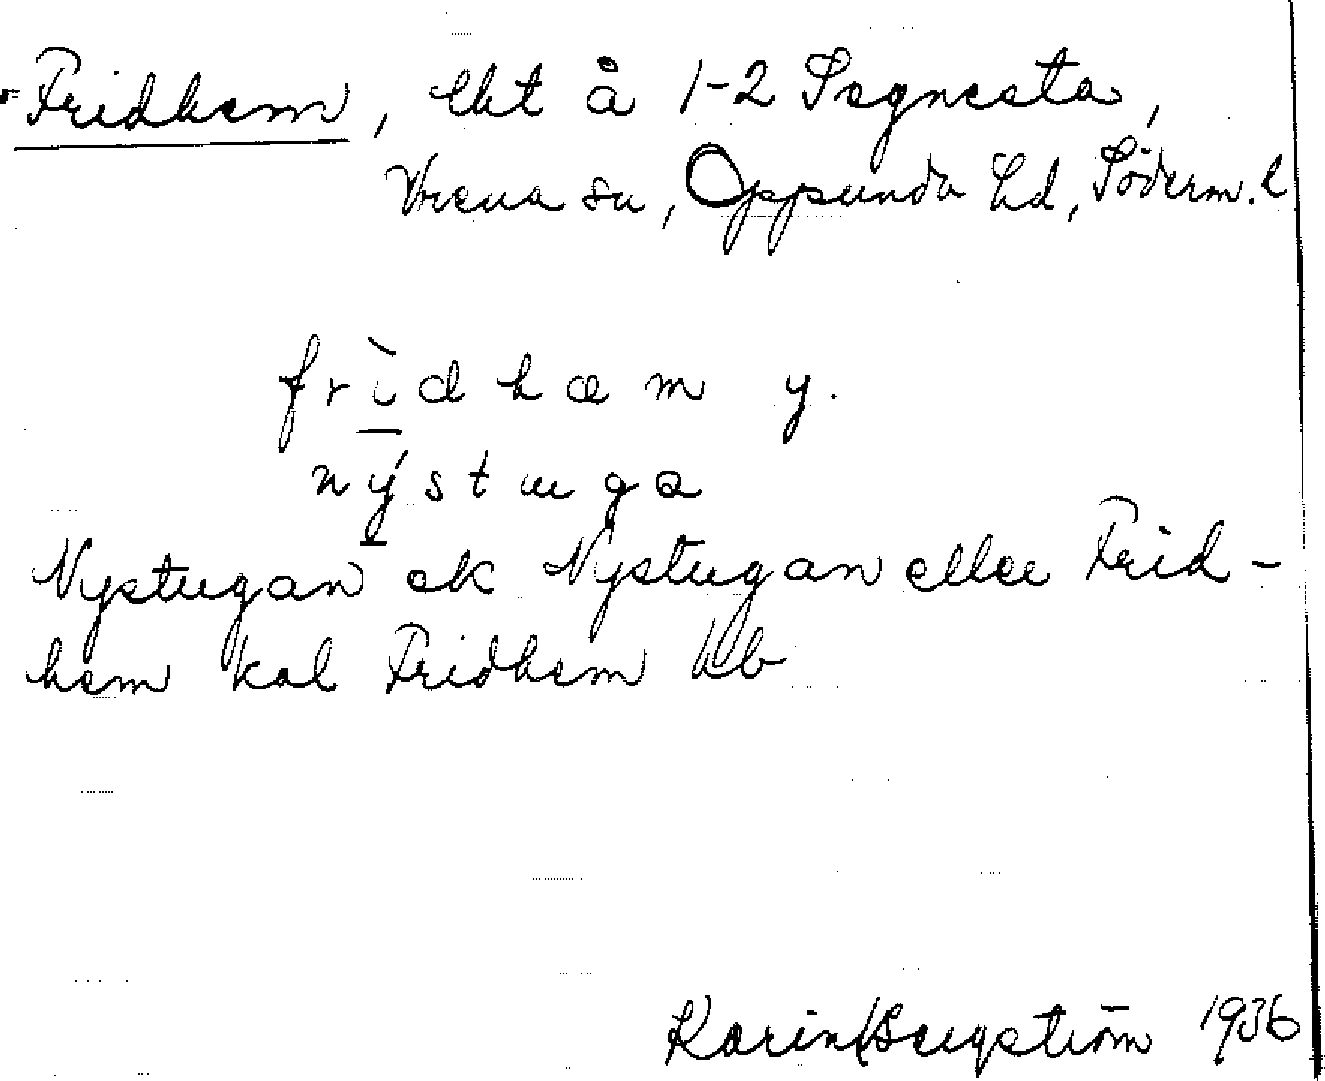 Fridhem, lht å 1-2 Sagnesta,
Vrena sn, Oppunda hd, Söderm. l
frìdhæm y.
nýstuga
Nystugan ek Nystugan eller Frid-
hem kal Fridhem hb
Karin Bergström 1936